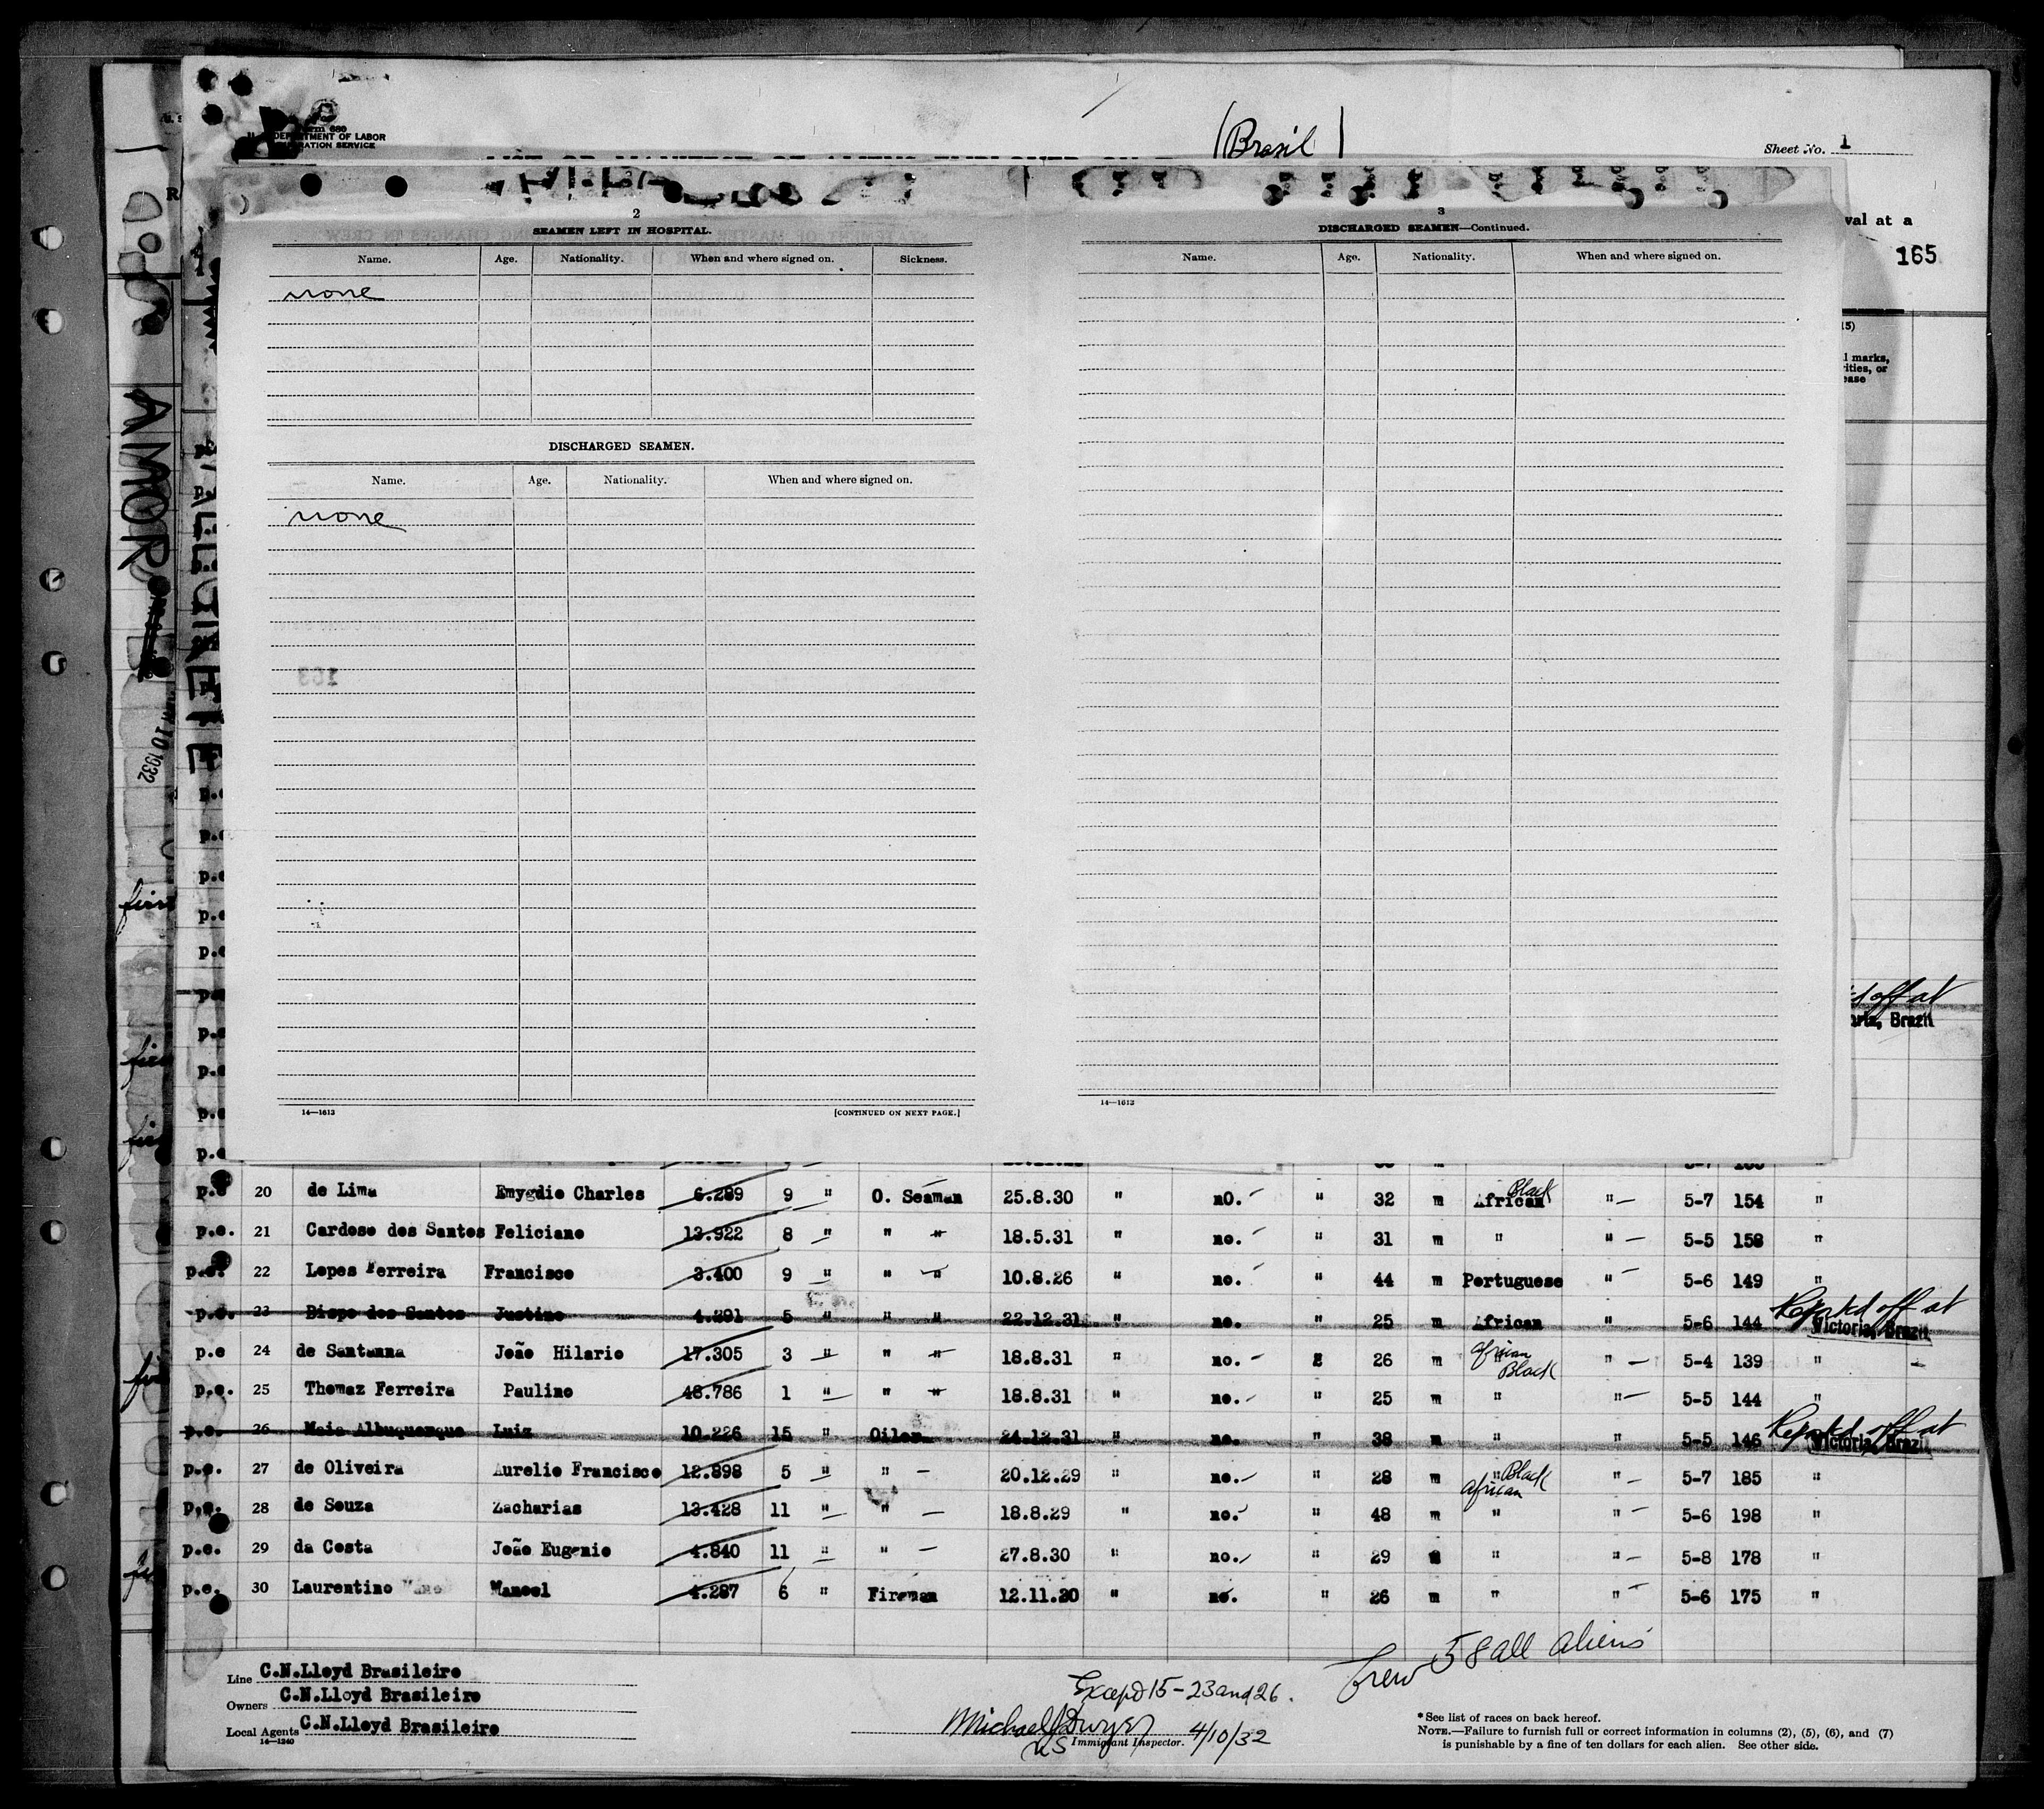 DEPARTMENT OF LABOR
IMMIGRATION SERVICE
Brasil
Sheet No. 1
val at a
165
l marks,
rities, or
ease
AMOR
10 1932
2
SEAMEN LEFT IN HOSPITAL.
Name. Age. Nationality. When and where signed on. Sickness.
none
DISCHARGED SEAMEN.
Name. Age. Nationality. When and where signed on.
none
163
14—1613 [CONTINUED ON NEXT PAGE.]
3
DISCHARGED SEAMEN—Continued.
Name. Age. Nationality. When and where signed on.
14—1613
off at
oria, Brazil
p.e 20 de Lima Emygdio Charles 6.289 9 " O. Seaman 25.8.30 " nO. " 32 m African Black " 5-7 154 "
p.e. 21 Cardoso dos Santos Feliciano 13.922 8 " " " 18.5.31 " no. " 31 m " " 5-5 158 "
p.e. 22 Lopes Ferreira Francisco 3.400 9 " " " 10.8.26 " no. " 44 m Portuguese " 5-6 149 "
p.e. 23 Bispo dos Santos Justino 4.291 5 " " " 22.12.31 " no. " 25 m African " 5-6 144 off at Victoria, Brazil
p.e 24 de Santanna João Hilario 17.305 3 " " " 18.8.31 " no. " 26 m African Black " 5-4 139 "
p.e. 25 Thomaz Ferreira Paulino 48.786 1 " " " 18.8.31 " no. " 25 m " " 5-5 144 "
p.e. 26 Maia Albuquerque Luiz 10.226 15 " Oiler 24.12.31 " no. " 38 m " " 5-5 146 off at Victoria, Brazil
p.e. 27 de Oliveira Aurelio Francisco 12.898 5 " " 20.12.29 " no. " 28 m " Black African " 5-7 185 "
p.e. 28 de Souza Zacharias 13.428 11 " " 18.8.29 " no. " 48 m " " 5-6 198 "
p.e. 29 da Costa João Eugenio 4.840 11 " " 27.8.30 " no. " 29 m " " 5-8 178 "
p.e. 30 Laurentino Manoel 4.287 6 " Fireman 12.11.30 " no. " 26 m " " 5-6 175 "
Crew 58 all aliens
Line C.N.Lloyd Brasileiro
Owners C.N.Lloyd Brasileiro
Local Agents C.N.Lloyd Brasileiro
14—1240
Except 15-23 and 26.
Michael J Dwyer 4/10/32
Immigrant Inspector.
*See list of races on back hereof.
NOTE.—Failure to furnish full or correct information in columns (2), (5), (6), and (7)
is punishable by a fine of ten dollars for each alien. See other side.